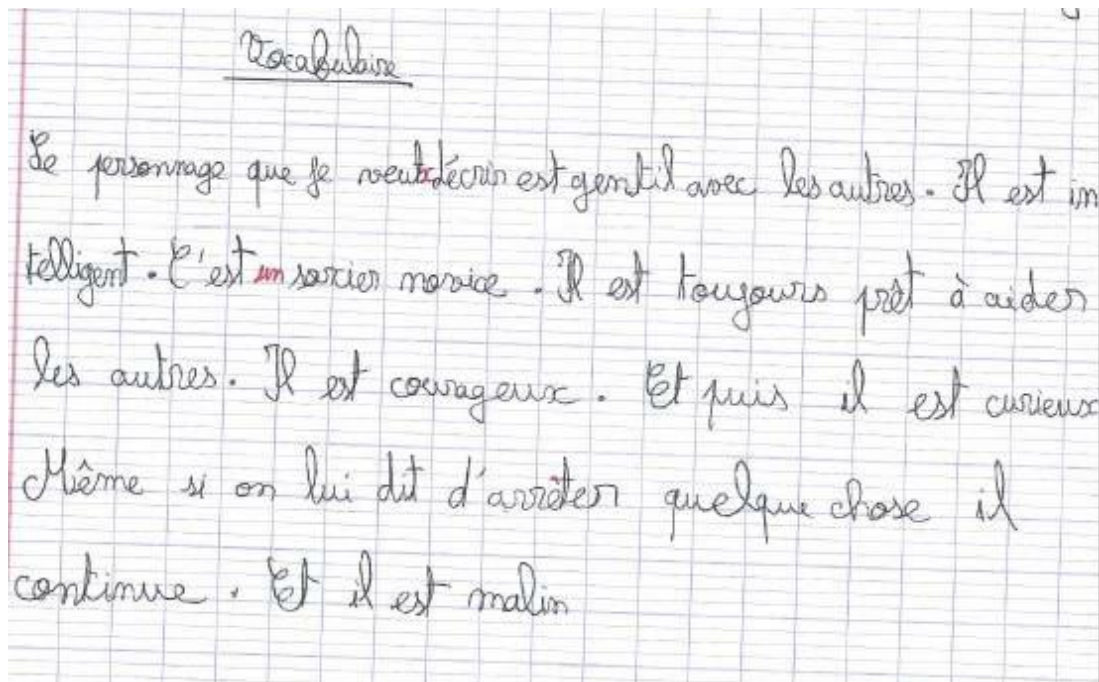 Vocabulaire
Le personnage que je veux décrir est gentil avec les autres. Il est in
telligent. C'est un sorcier novice. Il est toujours prêt à aider
les autres. Il est courageux. Et puis il est curieux
Même si on lui dit d'arrêter quelque chose il
continue. Et il est malin